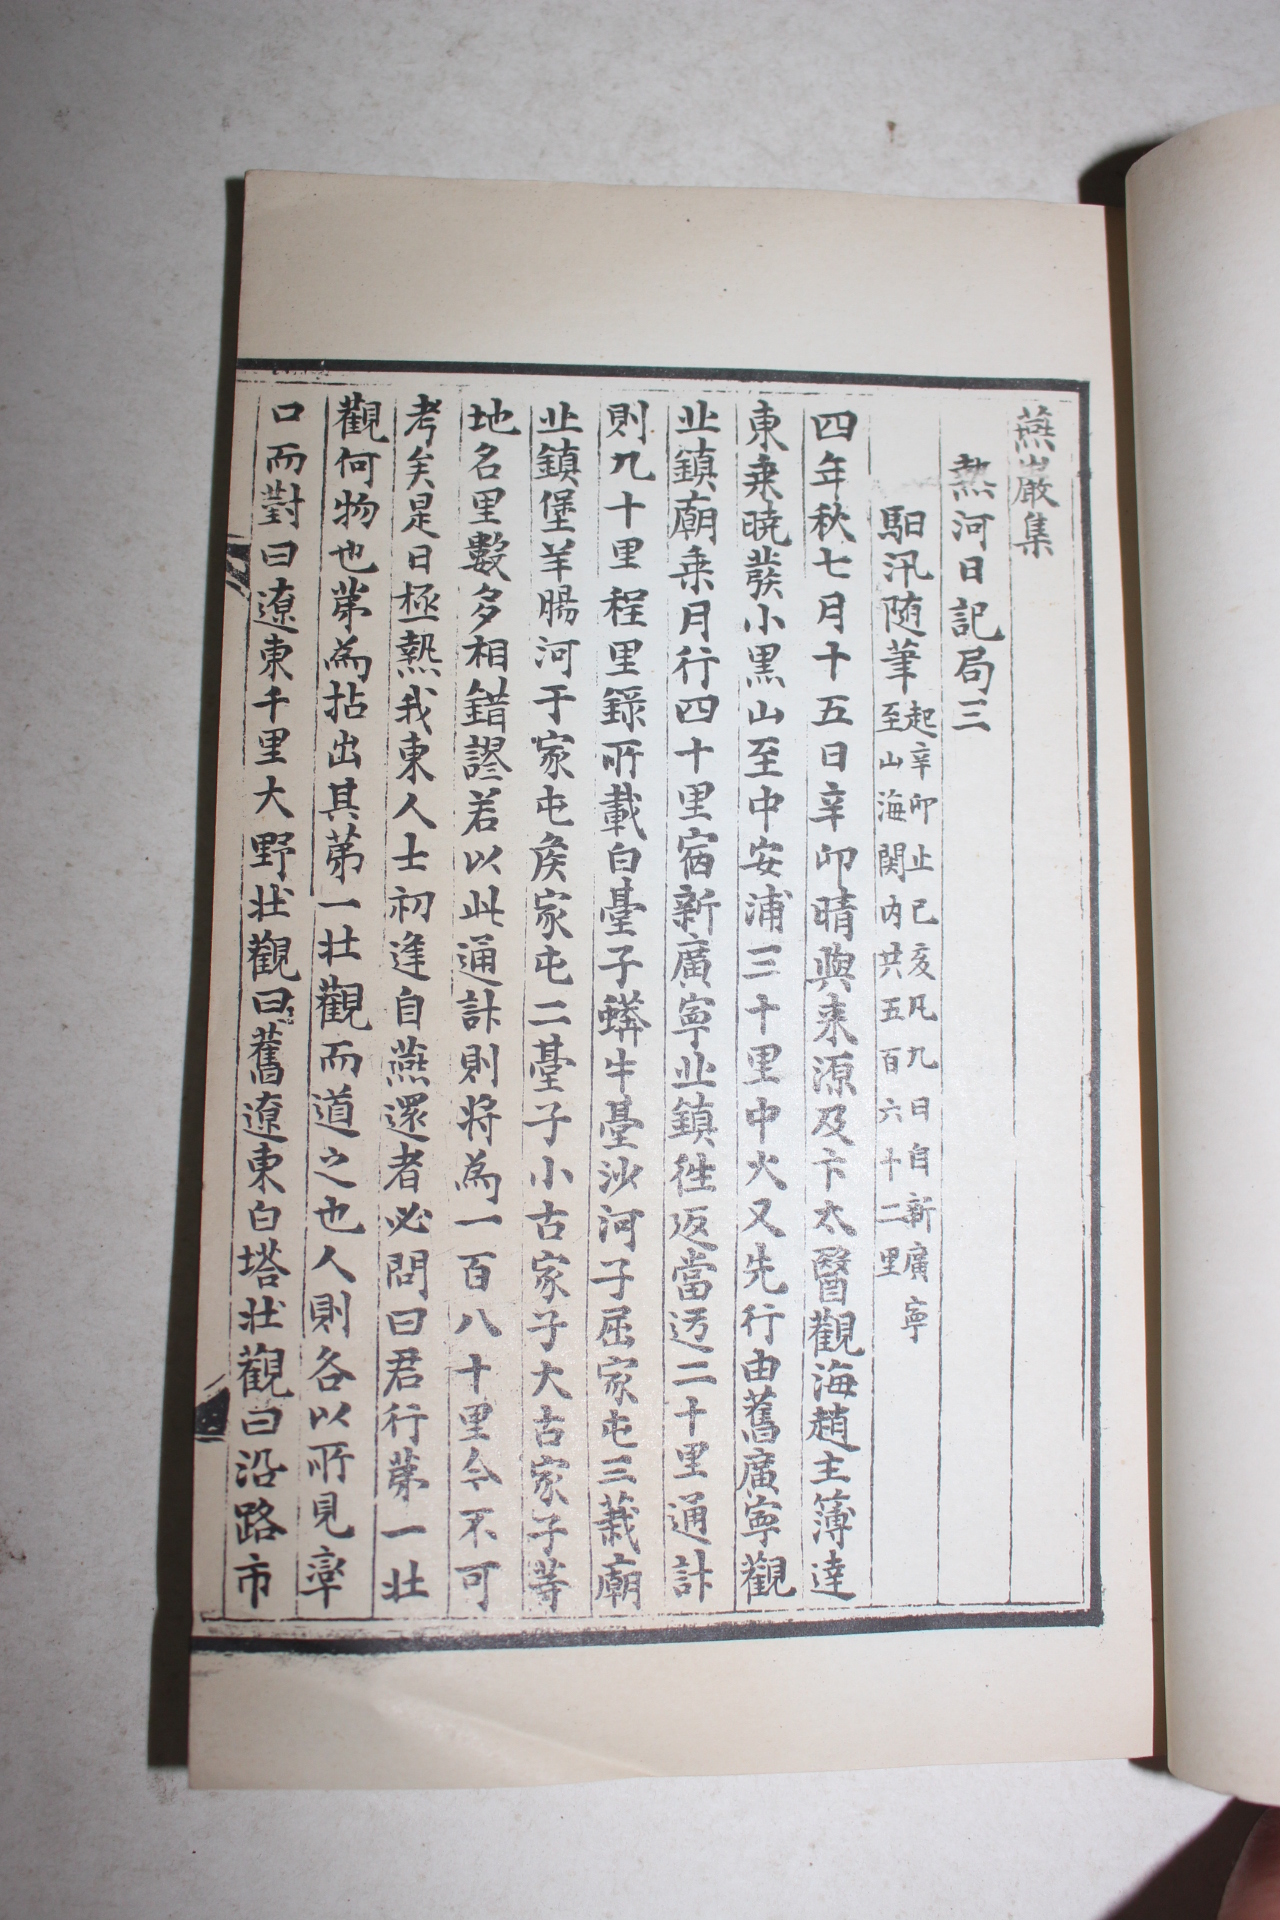 燕巖集
熱河日記局三
馹汛随筆 起辛卯止己亥凡九日自新廣寧
至山海関内共五百六十二里
四年秋七月十五日辛卯晴與来源及卞太醫觀海趙主簿達
東乗曉發小黒山至中安浦三十里中火又先行由舊廣寧觀
北鎮廟乗月行四十里宿新廣寧北鎮徃返當迃二十里通計
則九十里程里録所載白臺子蟒牛臺沙河子屈家屯三義廟
北鎮堡羊腸河于家屯矦家屯二臺子小古家子大古家子等
地名里數多相錯謬若以此通計則将為一百八十里今不可
考矣是日極熱我東人士初逢自燕還者必問曰君行苐一壮
觀何物也苐為拈出其苐一壮觀而道之也人則各以所見率
口而對曰遼東千里大野壮觀曰舊遼東白塔壮觀曰沿路市